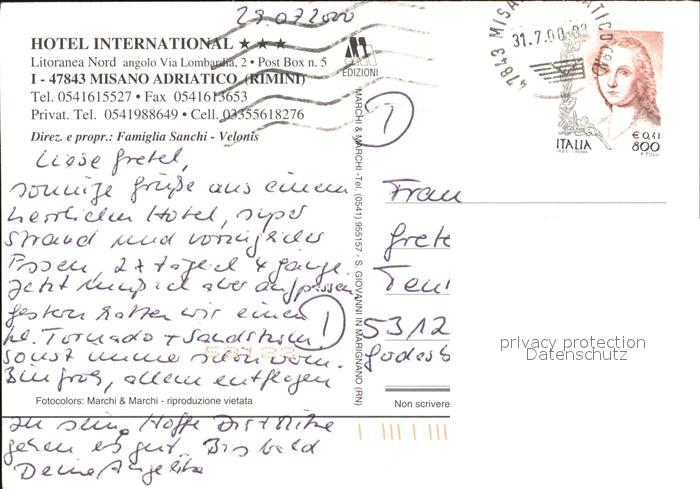 29.07.2000
HOTEL INTERNATIONAL ★ ★ ★
Litoranea Nord angolo Via Lombardia, 2 • Post Box n. 5
I - 47843 MISANO ADRIATICO (RIMINI)
Tel. 0541615527 • Fax 0541613653
Privat. Tel. 0541988649 • Cell. 03355618276
Direz. e propr.: Famiglia Sanchi - Velonis
EDIZIONI
MARCHI & MARCHI -Tel. (0541) 955157 - S. GIOVANNI IN MARIGNANO (RN)
47843 MISANO ADRIATICO
31.7.00
€ 0,41
800
ITALIA
Liebe Gretel,
sonnige Grüße aus einem
herrlichen Hotel, super
Strand und vorzügliches
Essen, 2x täglich 4 Gänge.
Jetzt muß ich aber aufpassen
gestern hatten wir einen
kl. Tornado + Sandsturm
sonst immer schön warm.
Bin froh, allem entflogen
zu sein. Hoffe
gehen es gut. Bis bald
Deine Angelika
I
I
Frau
Grete
5312
Godesb
privacy protection
Datenschutz
Fotocolors: Marchi & Marchi - riproduzione vietata
Non scrivere